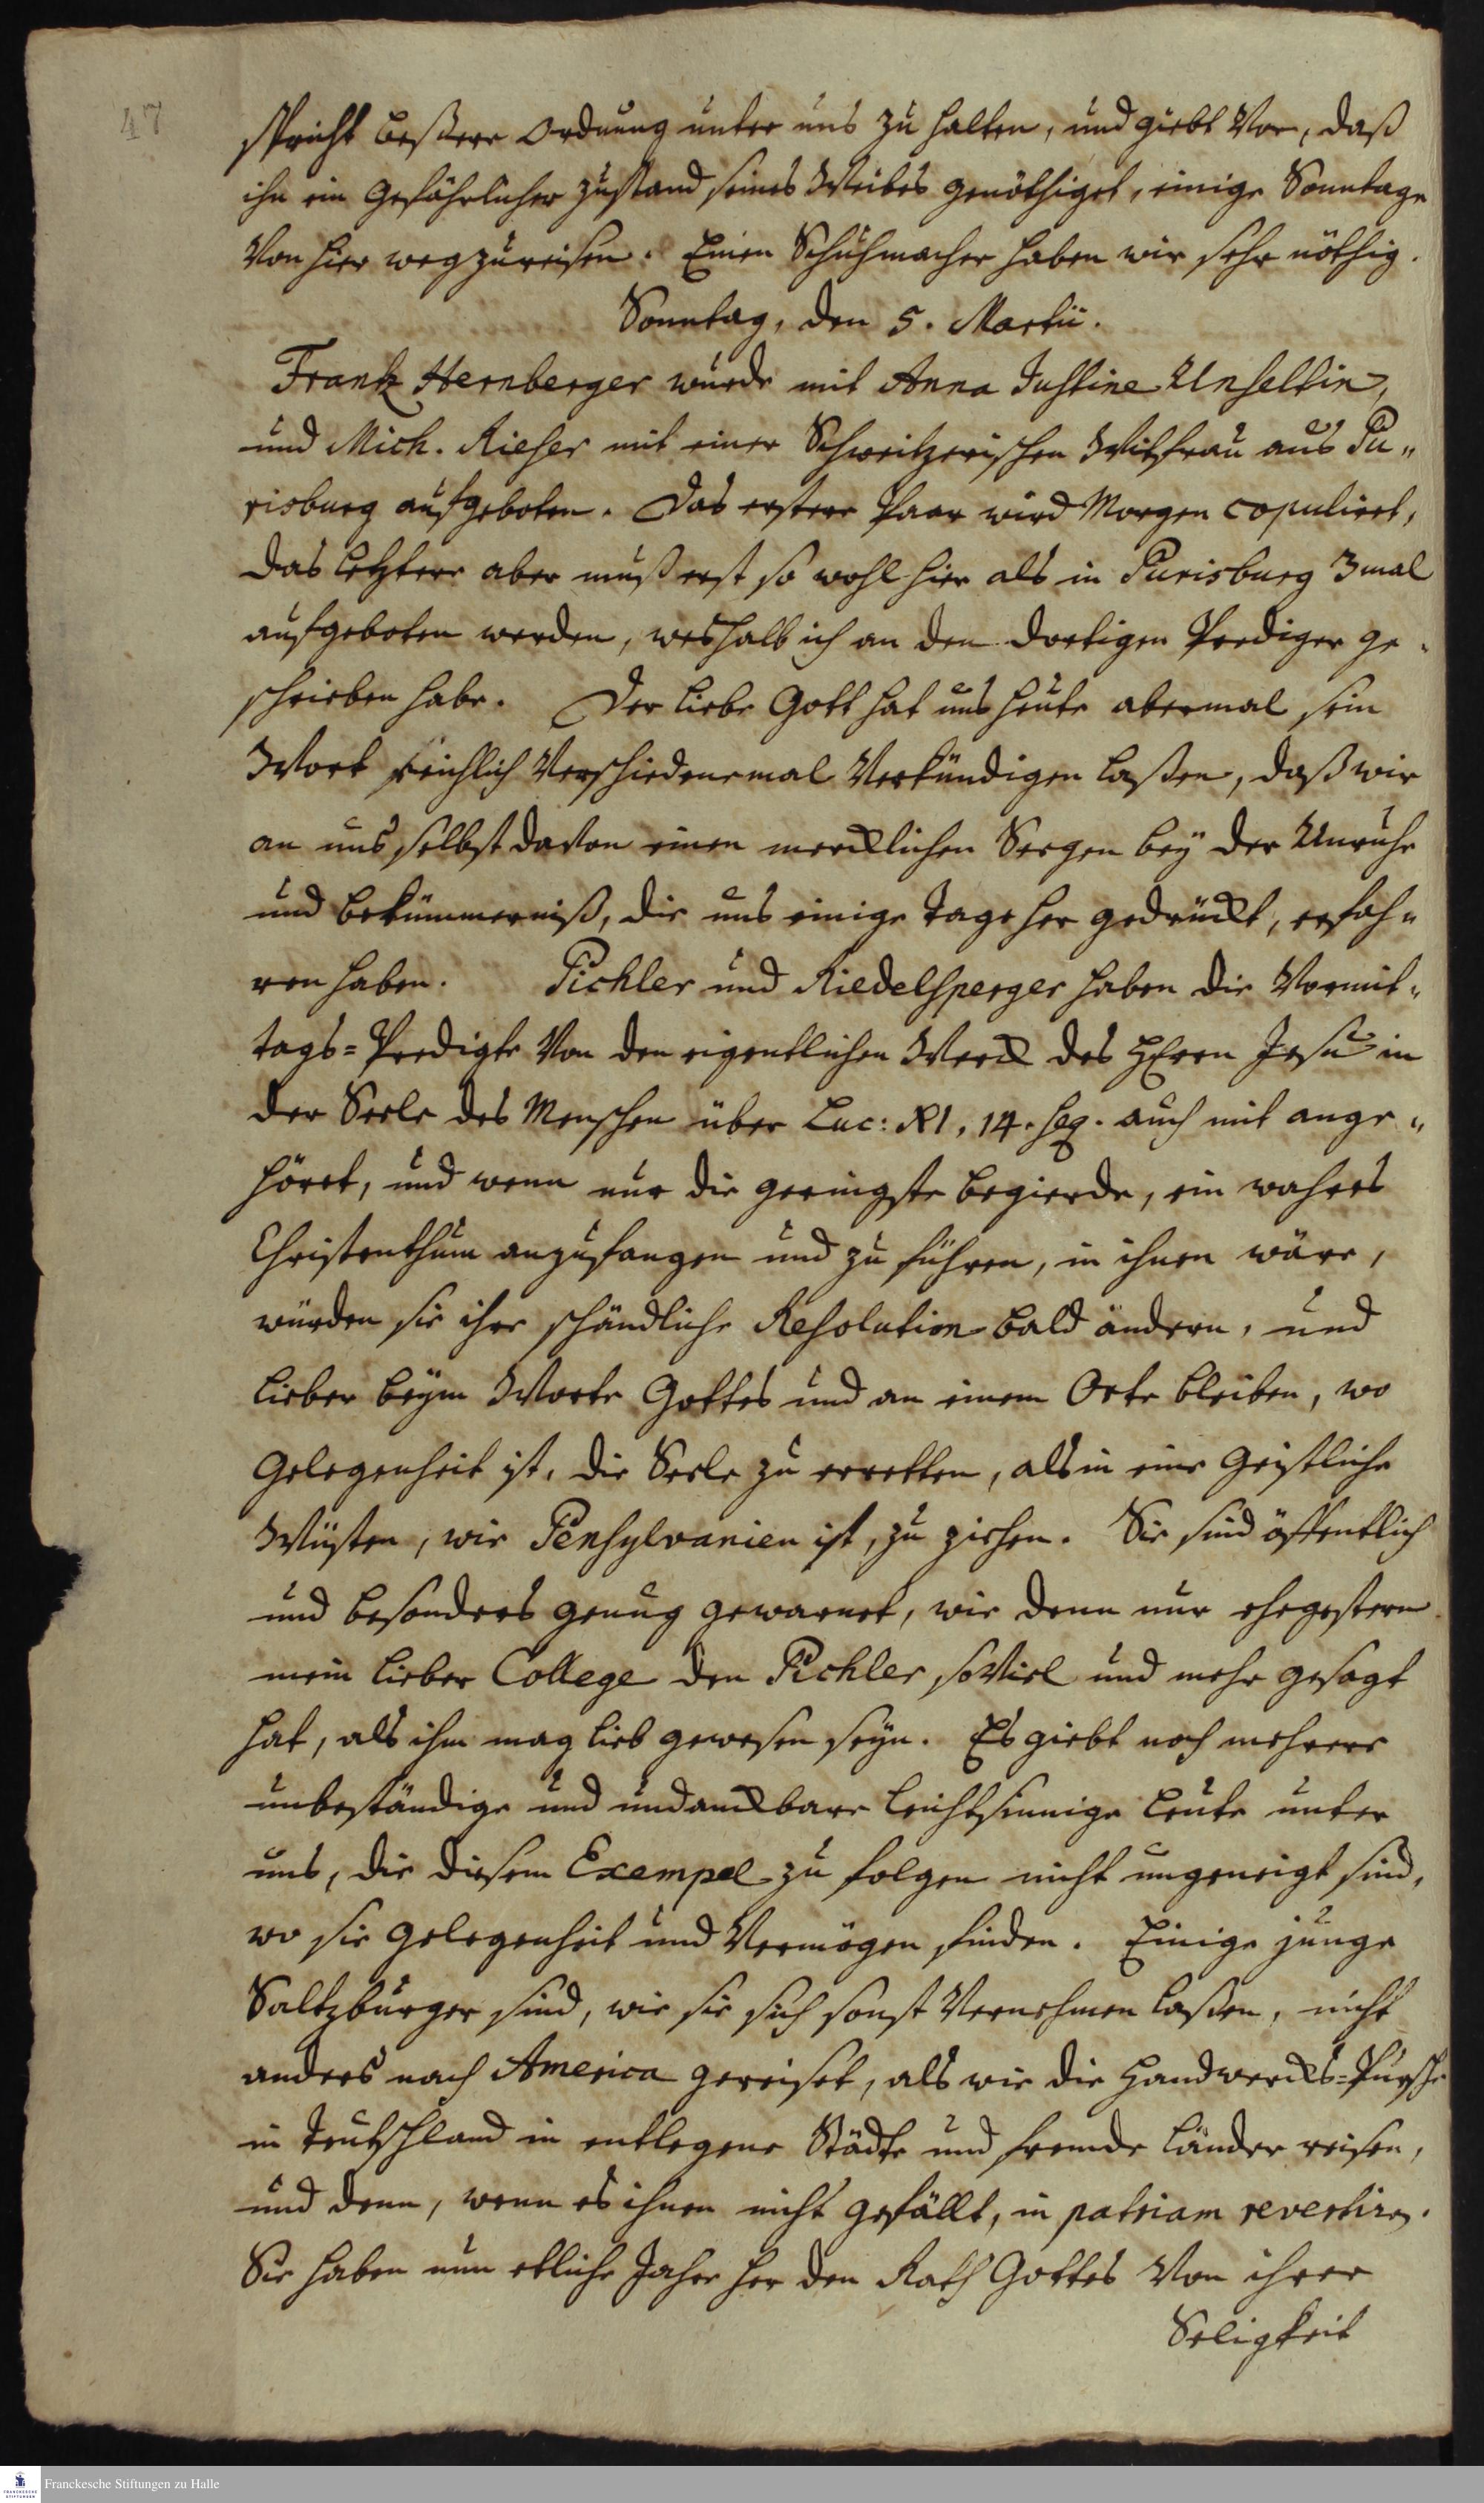 47
spricht beßere Ordnung unter uns zu halten, und giebt Vor, daß
ihn ein Gefährlicher Zustand seines Weibes genöthiget, einige Sonntage
Von hier wegzureisen. Einen Schuhmacher haben wir sehr nöthig.
Sonntag, den 5. Martii.
Frantz Hernberger wurde mit Anna Justine Unseltin,
und Mich. Rieser mit einer Schweitzerischen Witfrau aus Pu„
risburg aufgeboten. Das erstere Paar wird Morgen copulirt,
das letztere aber muß erst so wohl hier als in Purisburg 3mal
aufgeboten werden, weshalb ich an den dortigen Prediger ge„
schrieben habe. Der liebe Gott hat uns heute abermal sein
Wort reichlich Verschiedenemal Verkündigen laßen, daß wir
an uns selbst davon einen mercklichen Seegen bey der Unruhe
und bekümmerniß, die uns einige Tage her gedrückt, erfah„
ren haben. Pichler und Riedelsperger haben die Vormit„
tags=Predigte Von den eigentlichen Werck des HErrn Jesu in
der Seele des Menschen über Luc: XI, 14. seq. auch mit ange„
höret, und wenn nur die geringste begierde, ein wahres
Christenthum anzufangen und zu führen, in ihnen wäre,
würden sie ihre schändliche Resolution bald ändern, und
lieber beym Worte Gottes und an einem Orte bleiben, wo
Gelegenheit ist, die Seele zu erretten, als in eine Geistliche
Wüsten, wie Pensylvanien ist, zu ziehen. Sie sind öffentlich
und besonders genug gewarnet, wie denn nur ehegestern
mein lieber College den Pichler soviel und mehr gesagt
hat, als ihm mag lieb gewesen seyn. Es giebt noch mehrere
unbeständige und undanckbare leichtsinnige Leute unter
uns, die diesem Exempel zu folgen nicht ungeneigt sind,
wo sie Gelegenheit und Vermögen finden. Einige junge
Saltzburger sind, wie sie sich sonst Vernehmen laßen, nicht
anders nach America gereiset, als wie die Handwercks=Pursche
in Teutschland in entlegene Städte und fremde Länder reisen,
und denn, wenn es ihnen nicht gefällt, in patriam revertiren.
Sie haben nun etliche Jahre her den Rath Gottes Von ihrer
Seligkeit
Franckesche Stiftungen zu Halle
FRANCKESCHE
STIFTUNGEN